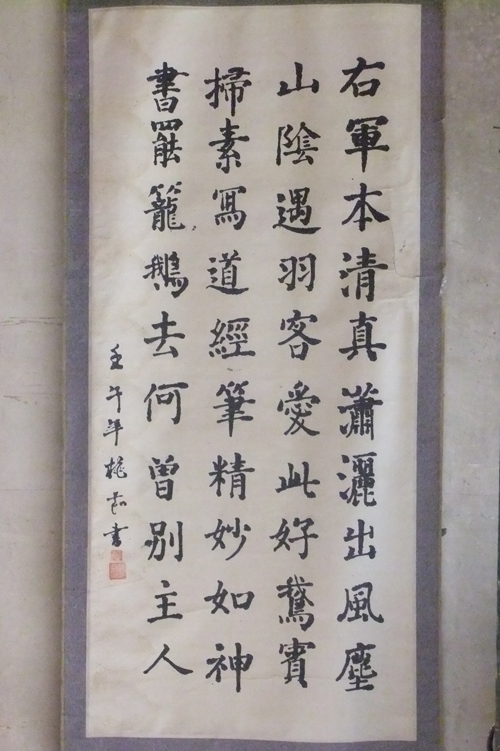 右軍本清真瀟灑出風塵
山陰遇羽客愛此好鵞賓
掃素寫道經筆精妙如神
書罷籠鵝去何曾別主人
壬午年書